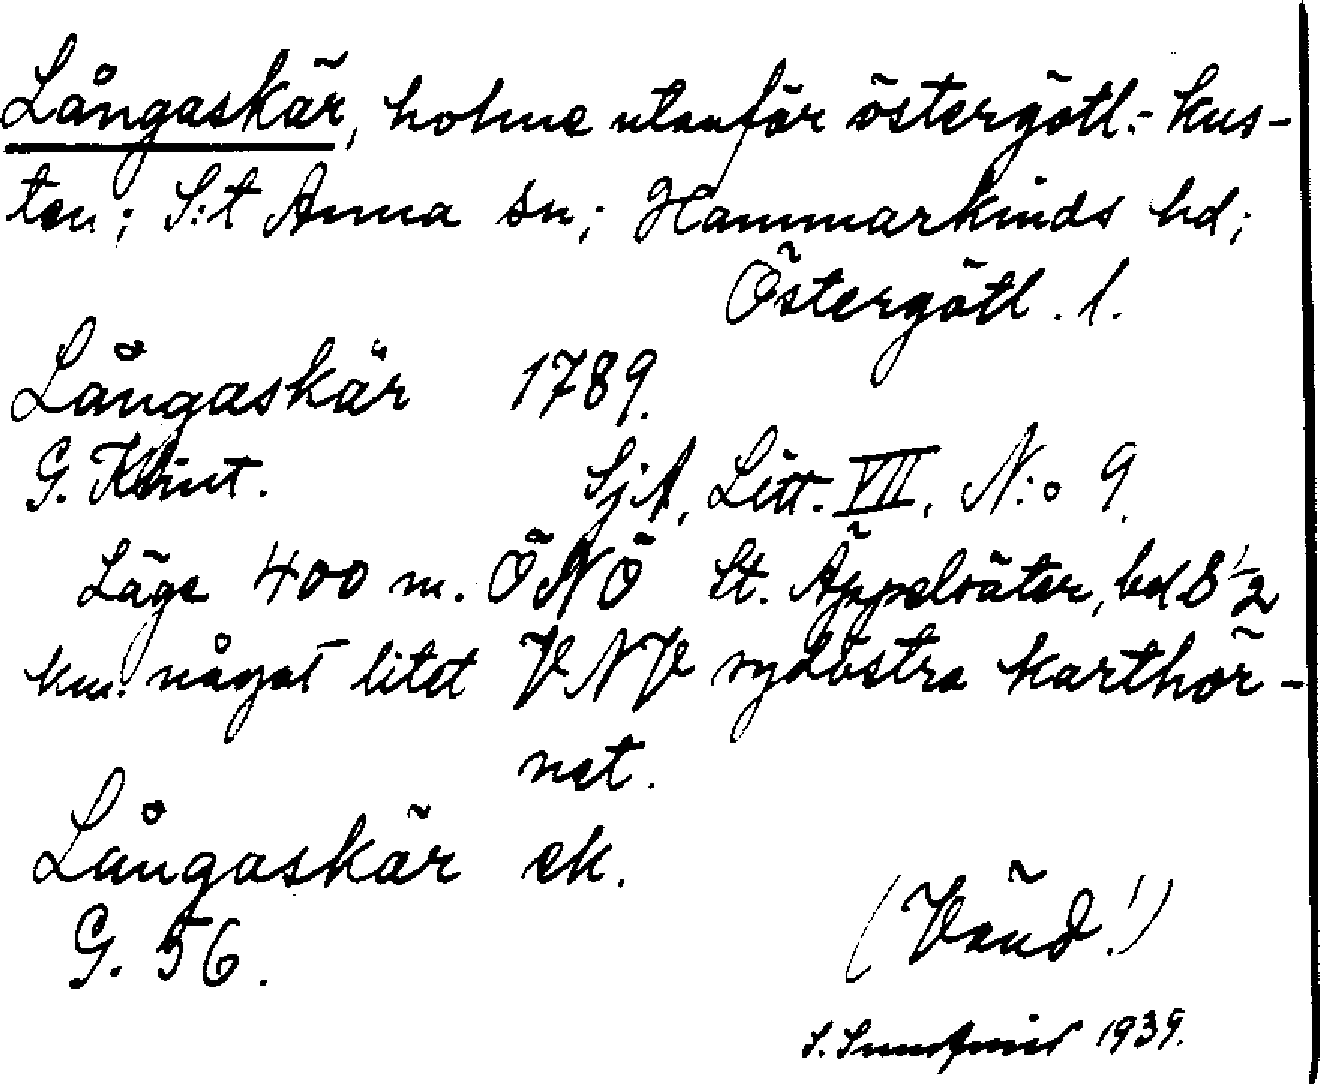 Långaskär, holme utanför östergötl.-kus-
ten; S:t Anna sn; Hammarkinds hd;
Östergötl. l.
Långaskär 1789.
G. Klint. Sjöf. Litt. VII. N:o 9.
Läge 400 m. ÖNÖ St. Äppelväter, bd 8 1/2
km. något litet VNV sydöstra karthör-
net.
Långaskär ek.
G. 56.
(Vänd!)
S. 1939.